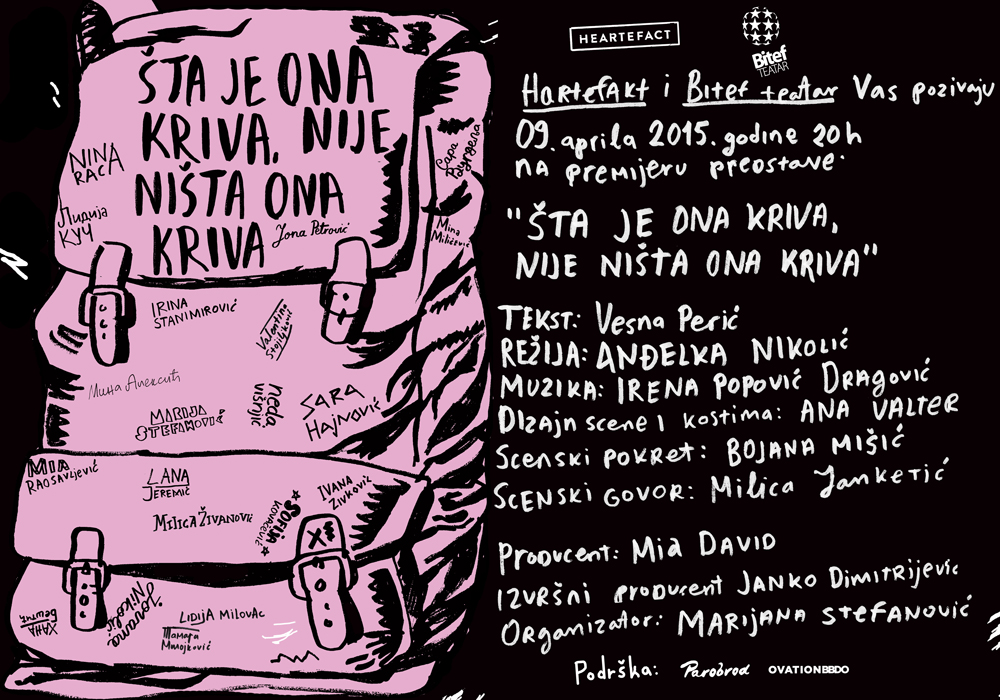 ŠTA JE ONA
KRIVA, NIJE
NIŠTA ONA
KRIVA
NINA
RACA
Лидија
КУЧ
Jona Petrović
Сара
Mina
Milićević
IRINA
STANIMIROVIĆ
Valentina
Stojiljković
Мина Алексић
MARIJA
STEFANOVIĆ
neda
višnjić
SARA
HAJNOVIĆ
MIA
RADSAVLJEVIĆ
LANA
JEREMIĆ
MILICA ŽIVANOVIĆ
SOFIJA
KOVAČEVIĆ
IVANA
ŽIVKOVIĆ
Jovana
Nikolić
LIDIJA MILOVAC
Тамара
Милојковић
ХАНА
HEARTEFACT
Bitef
TEATAR
Hartefakt i Bitef teatar Vas pozivaju
09. aprila 2015. godine 20h
na premijeru predstave:
"ŠTA JE ONA KRIVA,
NIJE NIŠTA ONA KRIVA"
TEKST: Vesna Perić
REŽIJA: ANĐELKA NIKOLIĆ
MUZIKA: IRENA POPOVIĆ DRAGOVIĆ
DIZAJN scene I kostima: ANA VALTER
Scenski POKRET: BOJANA MIŠIĆ
SCENSKI GOVOR: Milica Janketić
Producent: Mia DAVID
IZVRŠNI producent JANKO Dimitrijević
Organizator: MARIJANA STEFANOVIĆ
Podrška: Parobrod OVATIONBBDO